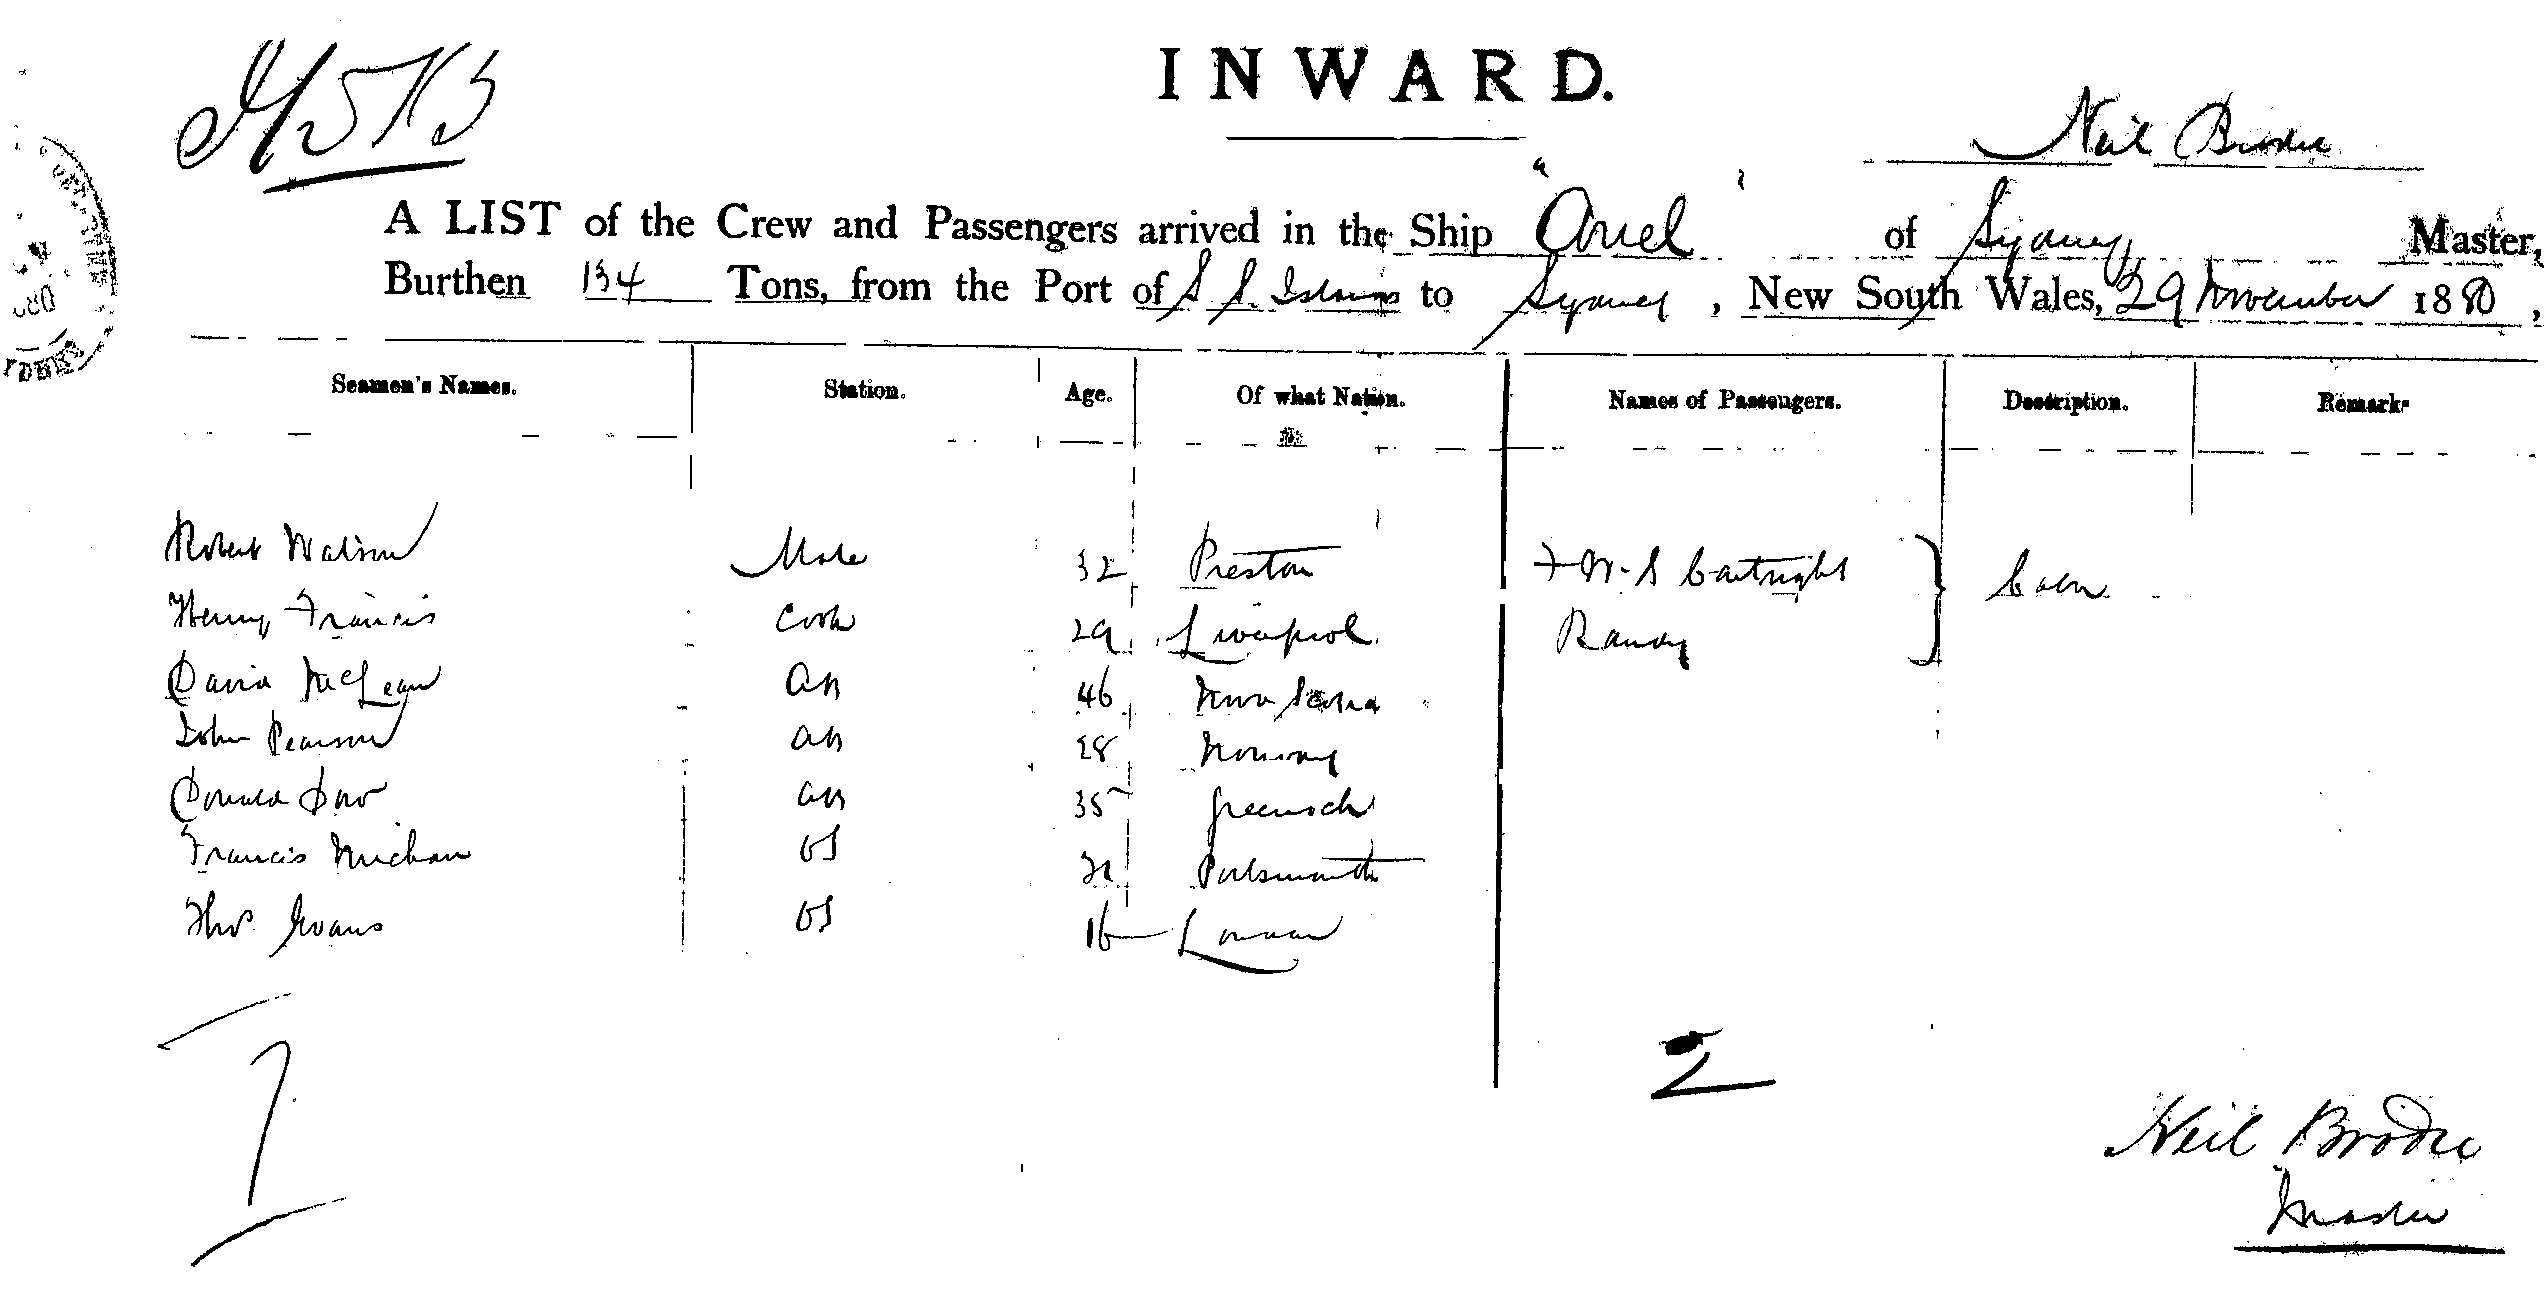 INWARD.
Neil Brodie
A LIST of the Crew and Passengers arrived in the Ship "Ariel" of Sydney Master,
Burthen 134 Tons, from the Port of S S. Islands to Sydney, New South Wales, 29 November 1880,
Seamen's Names. Station. Age. Of what Nation. Names of Passengers. Description. Remarks
Robert Watson Mate 32 Preston W. S Cartright } Cabin
Henry Francis Cook 29 Liverpool Randy
David McLean AB 46 Nova Scotia
John Pearson AB 28 Norway
Donald Dow AB 35 Greenock
Francis OS Portsmouth
Thos Evans OS 16 London
7 2
Neil Brodie
Master